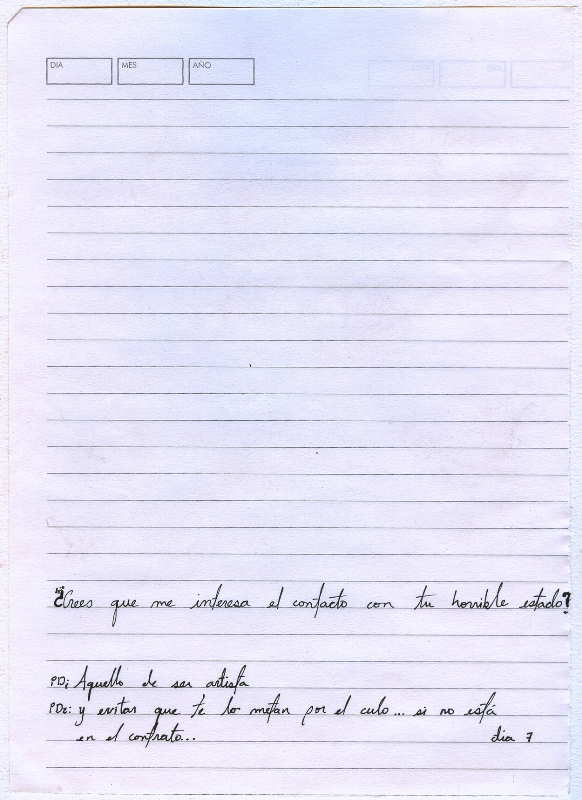 DIA MES AÑO
¿Crees que me interesa el contacto con tu horrible estado?
PD: Aquello de ser artista
PD2: y evitar que te lo metan por el culo... si no está
en el contrato... dia 7